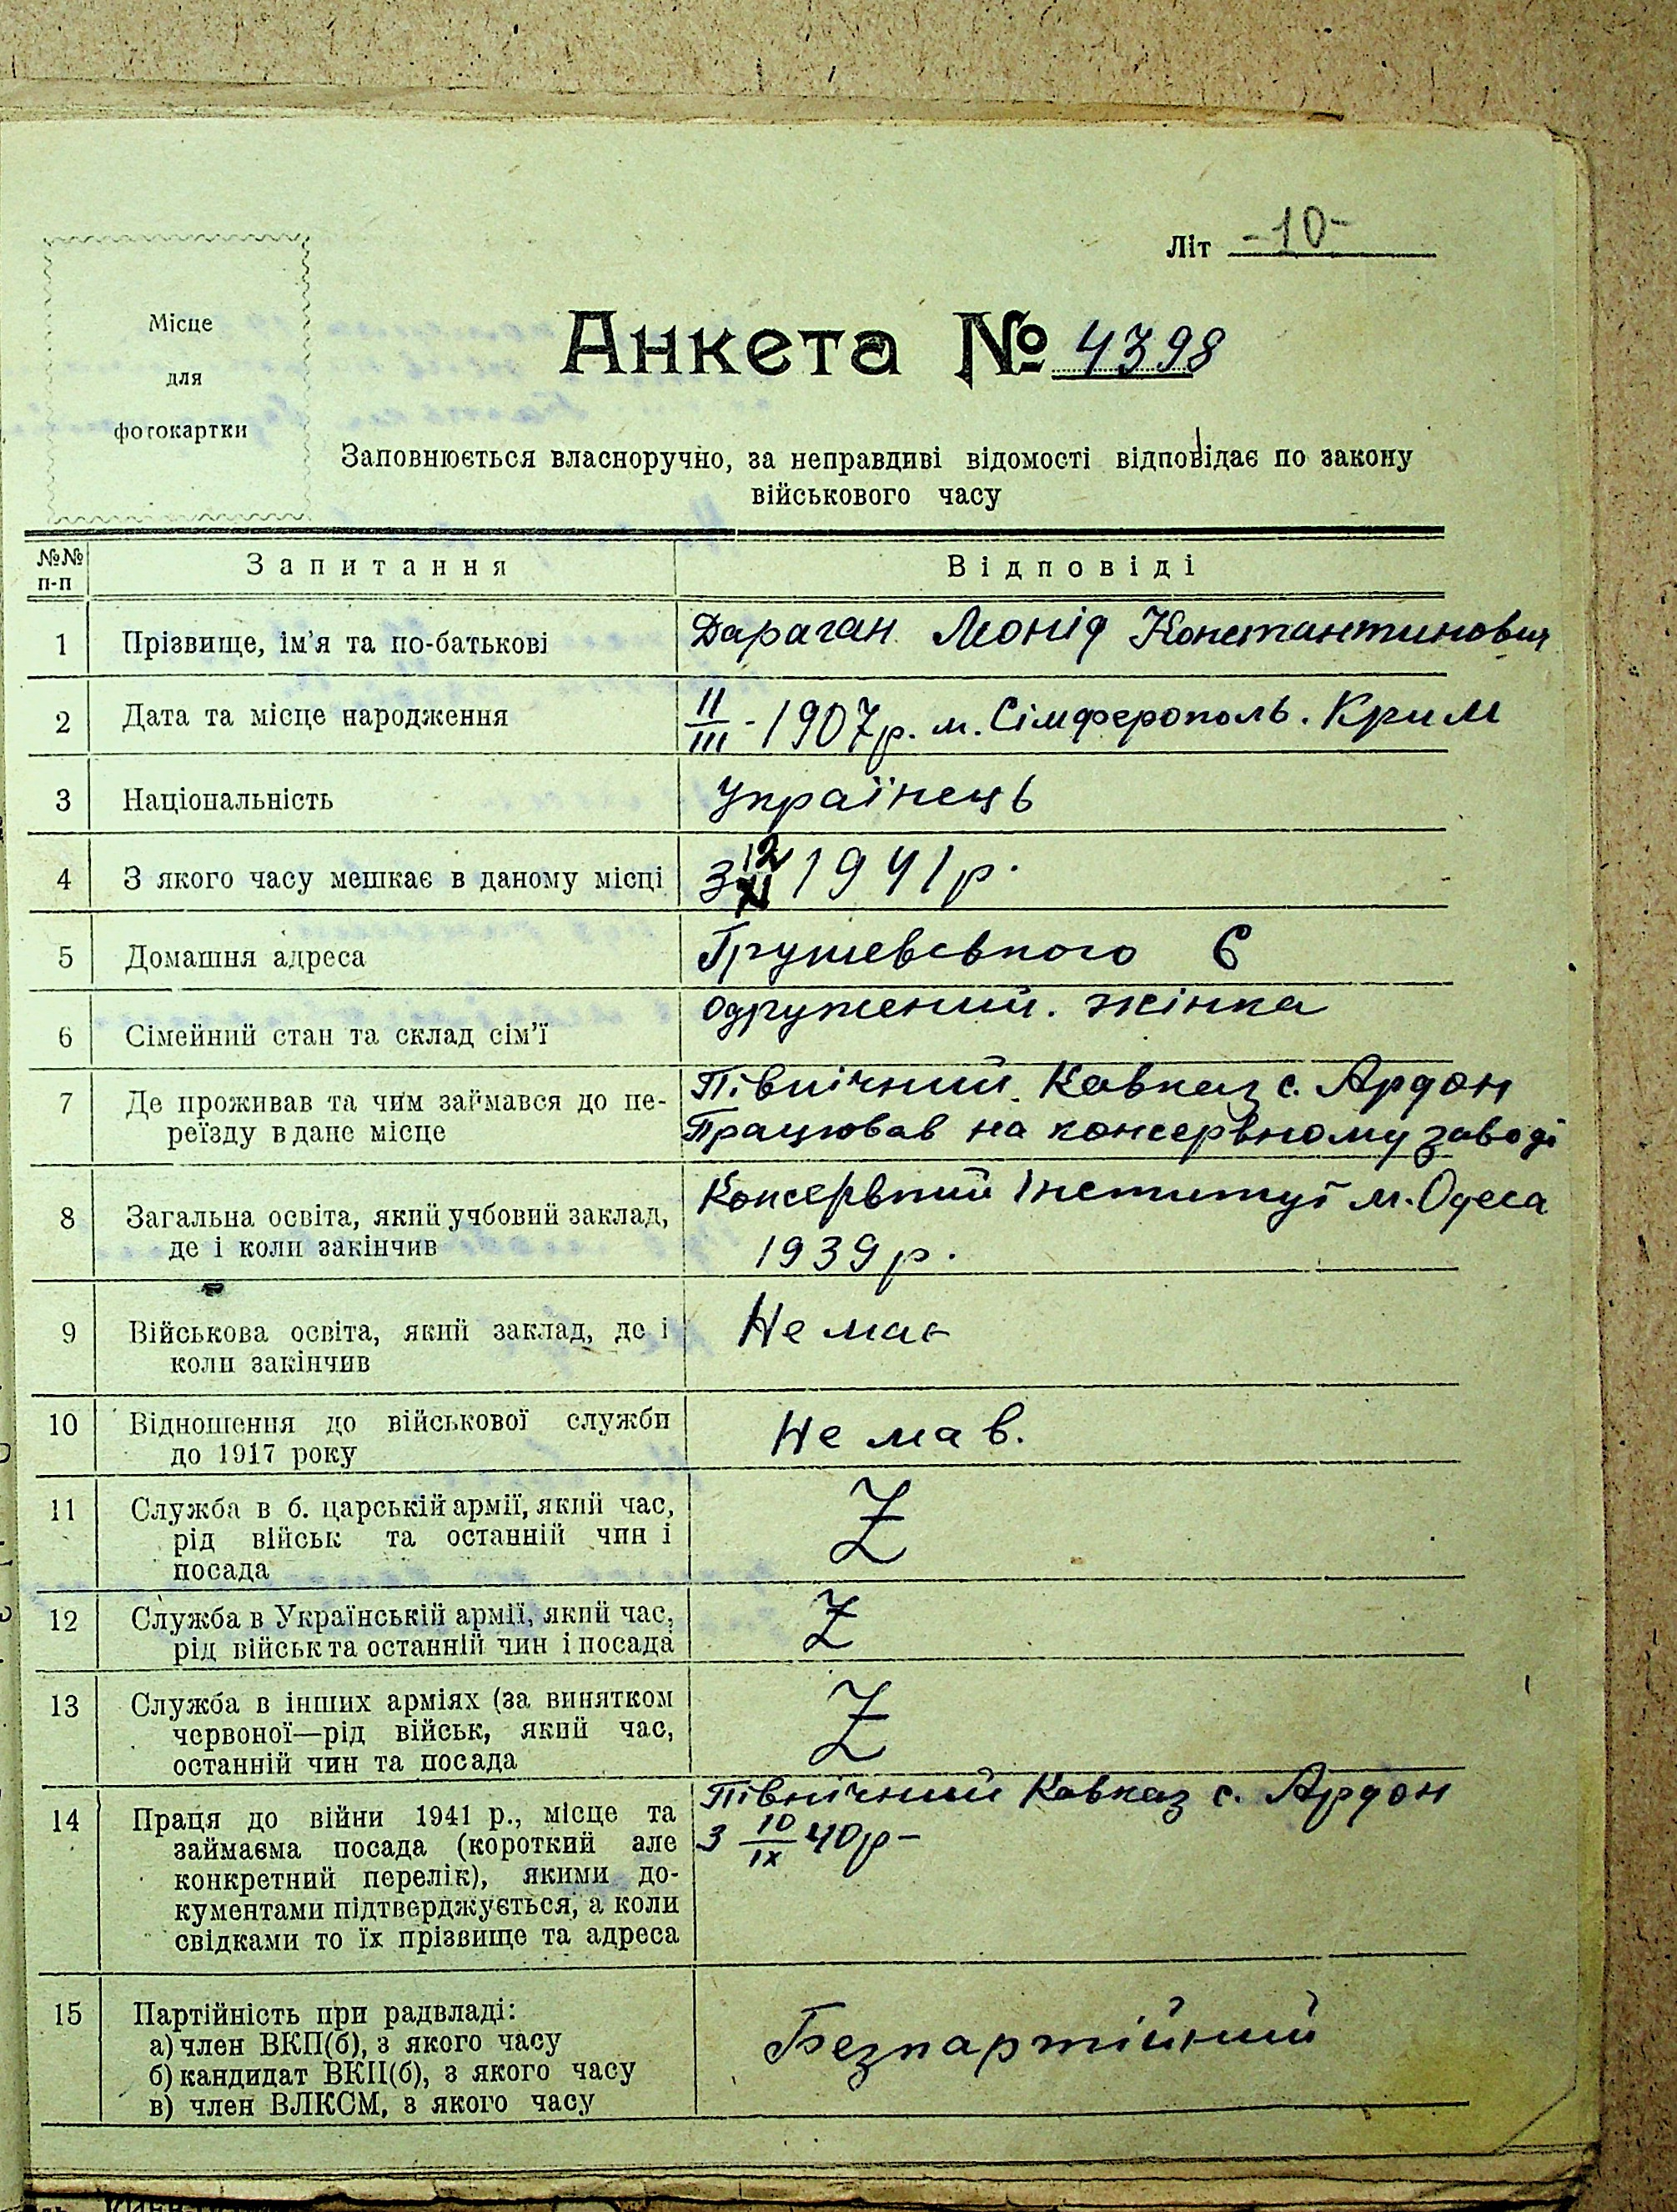 Літ -10-
Місце
для
фотокартки
Анкета № 4398
Заповнюється власноручно, за неправдиві відомості відповідає по закону
військового часу
№№
п-п
Запитання
Відповіді
1
Прізвище, ім'я та по-батькові
Дараган Леонід Константинович
2
Дата та місце народження
II/III - 1907 р. м. Сімферополь. Крим
3
Національність
Українець
4
З якого часу мешкає в даному місці
З 12 1941 р.
5
Домашня адреса
Грушевського 6
6
Сімейний стан та склад сім'ї
одружений. жінка
7
Де проживав та чим займався до пе-
реїзду в дане місце
Північний Кавказ с. Ардон
Працював на консервному заводі
8
Загальна освіта, який учбовий заклад,
де і коли закінчив
Консервний Інститут м. Одеса
1939 р.
9
Військова освіта, який заклад, де і
коли закінчив
Не має
10
Відношення до військової служби
до 1917 року
Не мав.
11
Служба в б. царській армії, який час,
рід військ та останній чин і
посада
Z
12
Служба в Українській армії, який час,
рід військ та останній чин і посада
Z
13
Служба в інших арміях (за винятком
червоної—рід військ, який час,
останній чин та посада
Z
14
Праця до війни 1941 р., місце та
займаєма посада (короткий але
конкретний перелік), якими до-
кументами підтверджується, а коли
свідками то їх прізвище та адреса
Північний Кавказ с. Ардон
З 10/IX 40 р -
15
Партійність при радвладі:
а) член ВКП(б), з якого часу
б) кандидат ВКП(б), з якого часу
в) член ВЛКСМ, з якого часу
Безпартійний